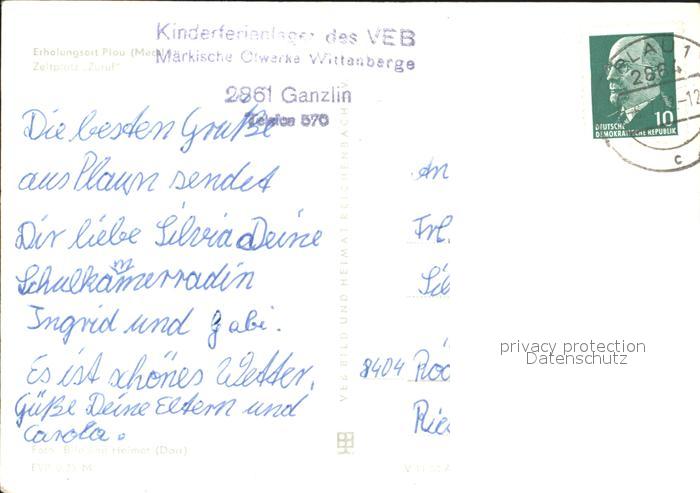 Kinderferienlager des VEB
Märkische Ölwerke Wittenberge
2861 Ganzlin
Telefon 570
Erholungsort Plau (Meckl
Zeltplatz "Zuruf"
Die besten Grüße
aus Plaun sendet
Dir liebe Silvia Deine
Schulkammerradin
Ingrid und Gabi.
Es ist schönes Wetter.
Güße Deine Eltern und
Carola.
Foto: Bild und Heimat (Dorr)
EVP 0,25 M
VEB BILD UND HEIMAT REICHENBACH
V 11 50 A
An
Frl.
Sil
8404 Röd
Rie
PLAU 1
286
-12
c
10
DEUTSCHE
DEMOKRATISCHE REPUBLIK
privacy protection
Datenschutz